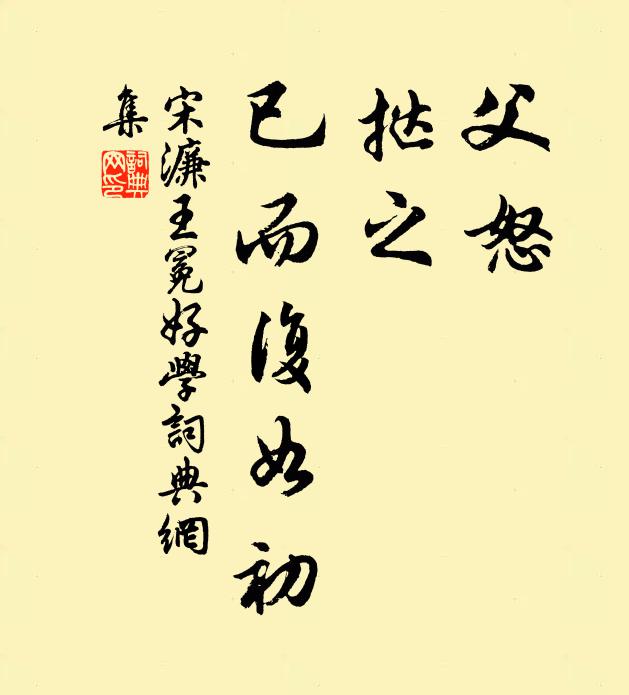 父怒
挞之
已而復如初
宋濂王冕好學詞典網
集
詞典
网印